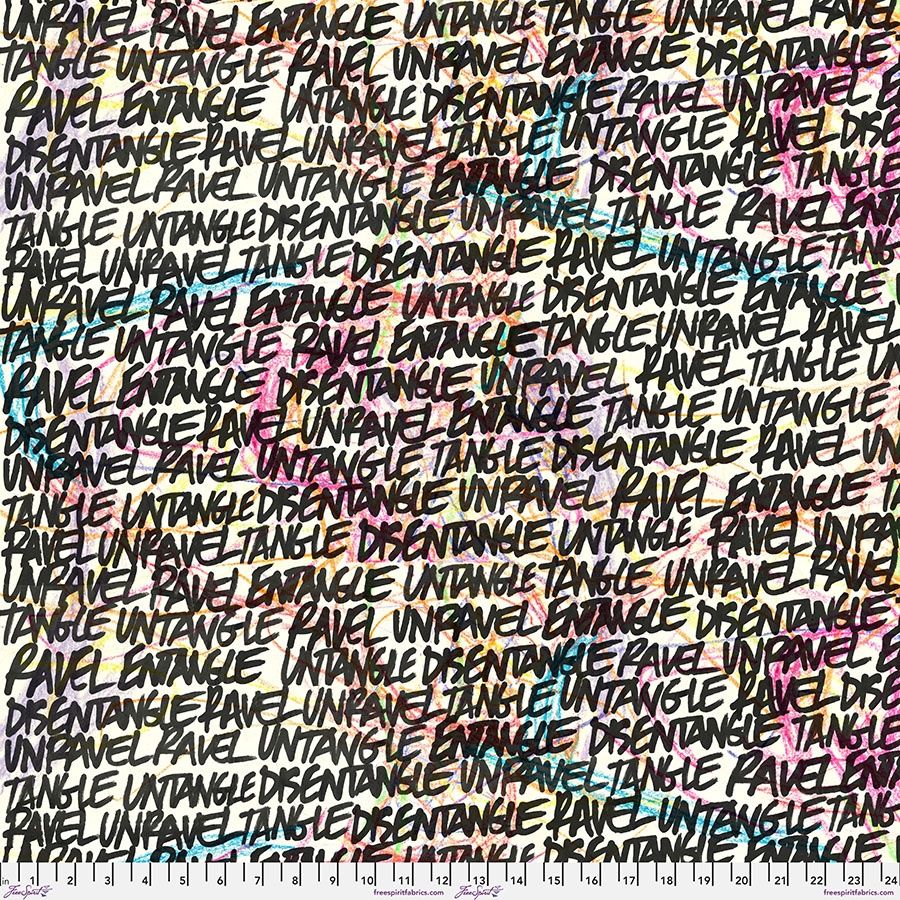 UNRAVEL RAVEL ENTANGLE UNTANGLE TANGLE UNRAVEL RAVEL
TANGLE UNTANGLE RAVEL UNRAVEL ENTANGLE DISENTANGLE
RAVEL ENTANGLE UNTANGLE DISENTANGLE RAVEL UNRAVEL E
DISENTANGLE RAVEL UNRAVEL TANGLE UNTANGLE RAVEL DISE
UNRAVEL RAVEL UNTANGLE ENTANGLE DISENTANGLE TANGLE
TANGLE UNTANGLE DISENTANGLE UNRAVEL TANGLE RAVEL ENTA
RAVEL UNRAVEL TANGLE DISENTANGLE RAVEL UNTANGLE TANG
UNRAVEL RAVEL ENTANGLE UNTANGLE DISENTANGLE ENTANGLE
TANGLE UNTANGLE RAVEL ENTANGLE TANGLE UNRAVEL RAVEL
RAVEL ENTANGLE DISENTANGLE UNRAVEL RAVEL TANGLE UN
DISENTANGLE RAVEL UNRAVEL ENTANGLE TANGLE UNTANGLE
UNRAVEL RAVEL UNTANGLE TANGLE DISENTANGLE RAVEL UN
TANGLE UNTANGLE DISENTANGLE UNRAVEL RAVEL ENTANGLE T
RAVEL UNRAVEL TANGLE DISENTANGLE UNTANGLE RAVEL UNRA
UNRAVEL RAVEL ENTANGLE UNTANGLE TANGLE UNRAVEL RAVEL
TANGLE UNTANGLE RAVEL UNRAVEL ENTANGLE DISENTANGLE
RAVEL ENTANGLE UNTANGLE DISENTANGLE RAVEL UNRAVEL E
DISENTANGLE RAVEL UNRAVEL TANGLE UNTANGLE RAVEL DISE
UNRAVEL RAVEL UNTANGLE ENTANGLE DISENTANGLE TANGLE
TANGLE UNTANGLE DISENTANGLE UNRAVEL TANGLE RAVEL ENTA
RAVEL UNRAVEL TANGLE DISENTANGLE RAVEL UNTANGLE TANG
UNRAVEL RAVEL ENTANGLE UNTANGLE DISENTANGLE ENTANGLE
in 1 2 3 4 5 6 7 8 9 10 11 12 13 14 15 16 17 18 19 20 21 22 23 24
FreeSpirit freespiritfabrics.com FreeSpirit freespiritfabrics.com